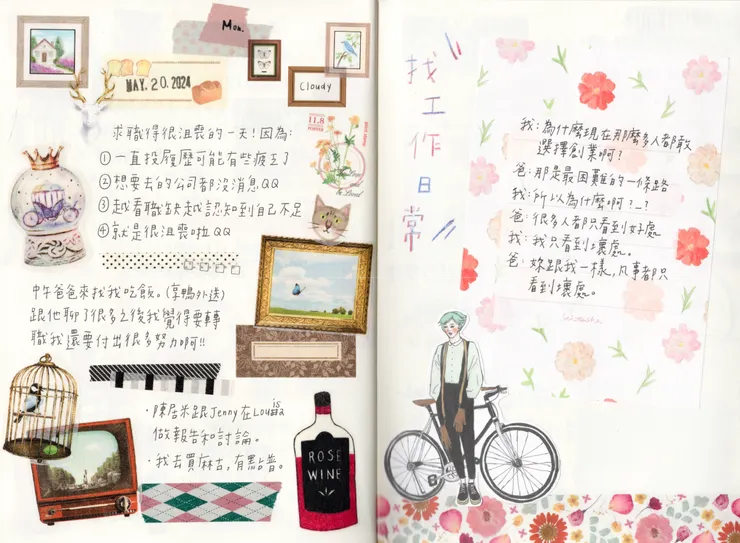 Mon.
MAY. 20. 2024
Cloudy
求職得很沮喪的一天!因為:
①一直投履歷可能有些疲乏了
②想要去的公司都沒消息QQ
③越看職缺越認知到自己不足
④就是很沮喪啦QQ
11.8
中午爸爸來找我吃飯。(享鴨外送)
跟他聊了很多之後我覺得要轉
職我還要付出很多努力啊!!
·陳居米跟Jenny在Louisa
做報告和討論。
·我去買麻古,有點普。
ROSE
WINE
找工作日常
我:為什麼現在那麼多人都敢
選擇創業啊?
爸:那是最困難的一條路
我:所以為什麼啊?_?
爸:很多人都只看到好處
我:我只看到壞處。
爸:妳跟我一樣,凡事都只
看到壞處。